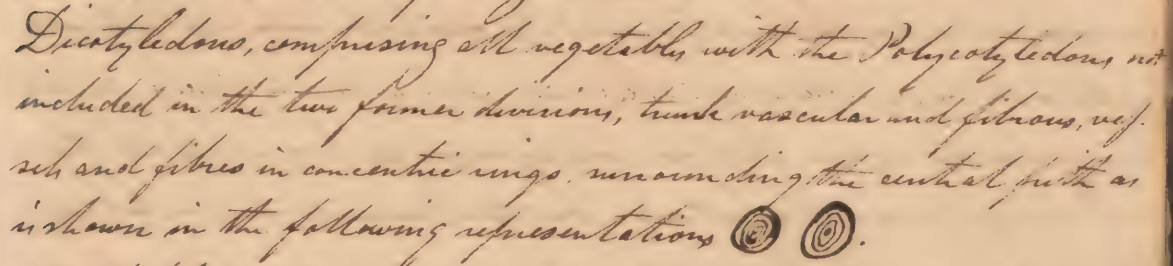 Dicotyledons, comprising all vegetables with the Polycotyledons not
included in the two former divisions, trunk vascular and fibrous, ves-
sels and fibres in concentric rings surrounding the central pith as
is shown in the following representations